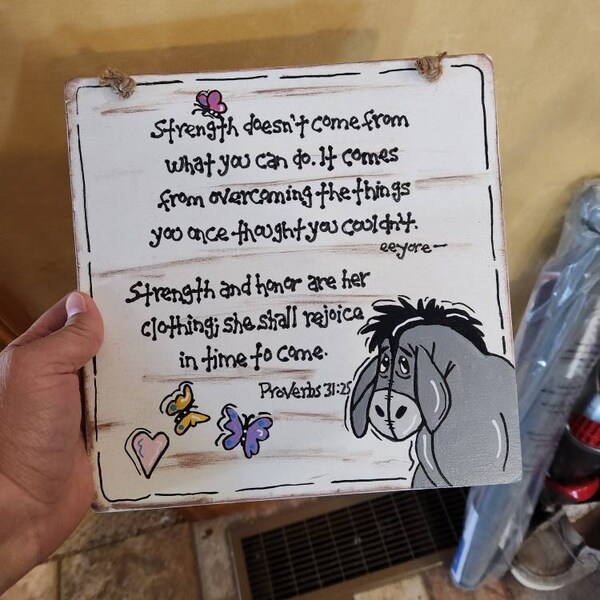 Strength doesn't come from
what you can do. It comes
from overcoming the things
you once thought you couldn't.
eeyore—
Strength and honor are her
clothing; she shall rejoice
in time to come.
Proverbs 31:25